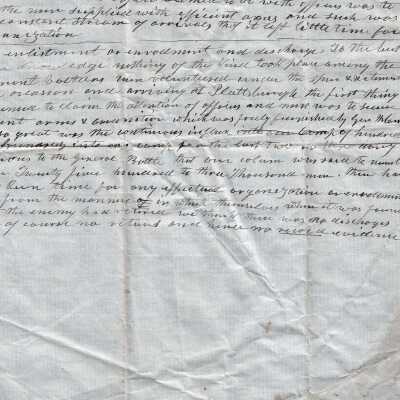 the men supplied with efficient arms and such was
constant stream of arrivals that it left little time for
organization
enlistment or enrollment and discharge. To the best
knowledge nothing of the kind took place among the
Vermont Volunteers men volunteered under the spur & excitement
occasion and arriving at Plattsburgh the first thing
seemed to claim the attention of officers and men was to secure
arms & ammunition which was freely furnished by Gen Macomb
so great was the continuous influx into our Camp of hundreds
into our camp for the last two
to the General Battle that our column was said to number
Twenty five hundred to three Thousand men. then had
been time for any effectual organization or enrollment
from the manner of in which themselves when it was found
the enemy had retired we think there was no discharges
of course no return and hence no record evidence